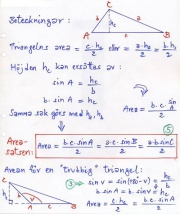 Beteckningar:
C
b a
h_c
A c B
Triangelns area = c·h_c/2 eller = a·h_a/2 = b·h_b/2
Höjden h_c kan ersättas av:
sin A = h_c/b
b·sin A = h_c
Samma sak görs med h_a, h_b
Area = b·c·sin A/2
5
Area-
satsen: Area = b·c·sin A/2 = a·c·sin B/2 = a·b·sin C/2
Arean för en "trubbig" triangel:
3 → sin v = sin(180 - v) = h_c/b
b·sin A = b·sin v = h_c
Area = c·h_c/2 = b·c·sin A/2
C
h_c
A c B